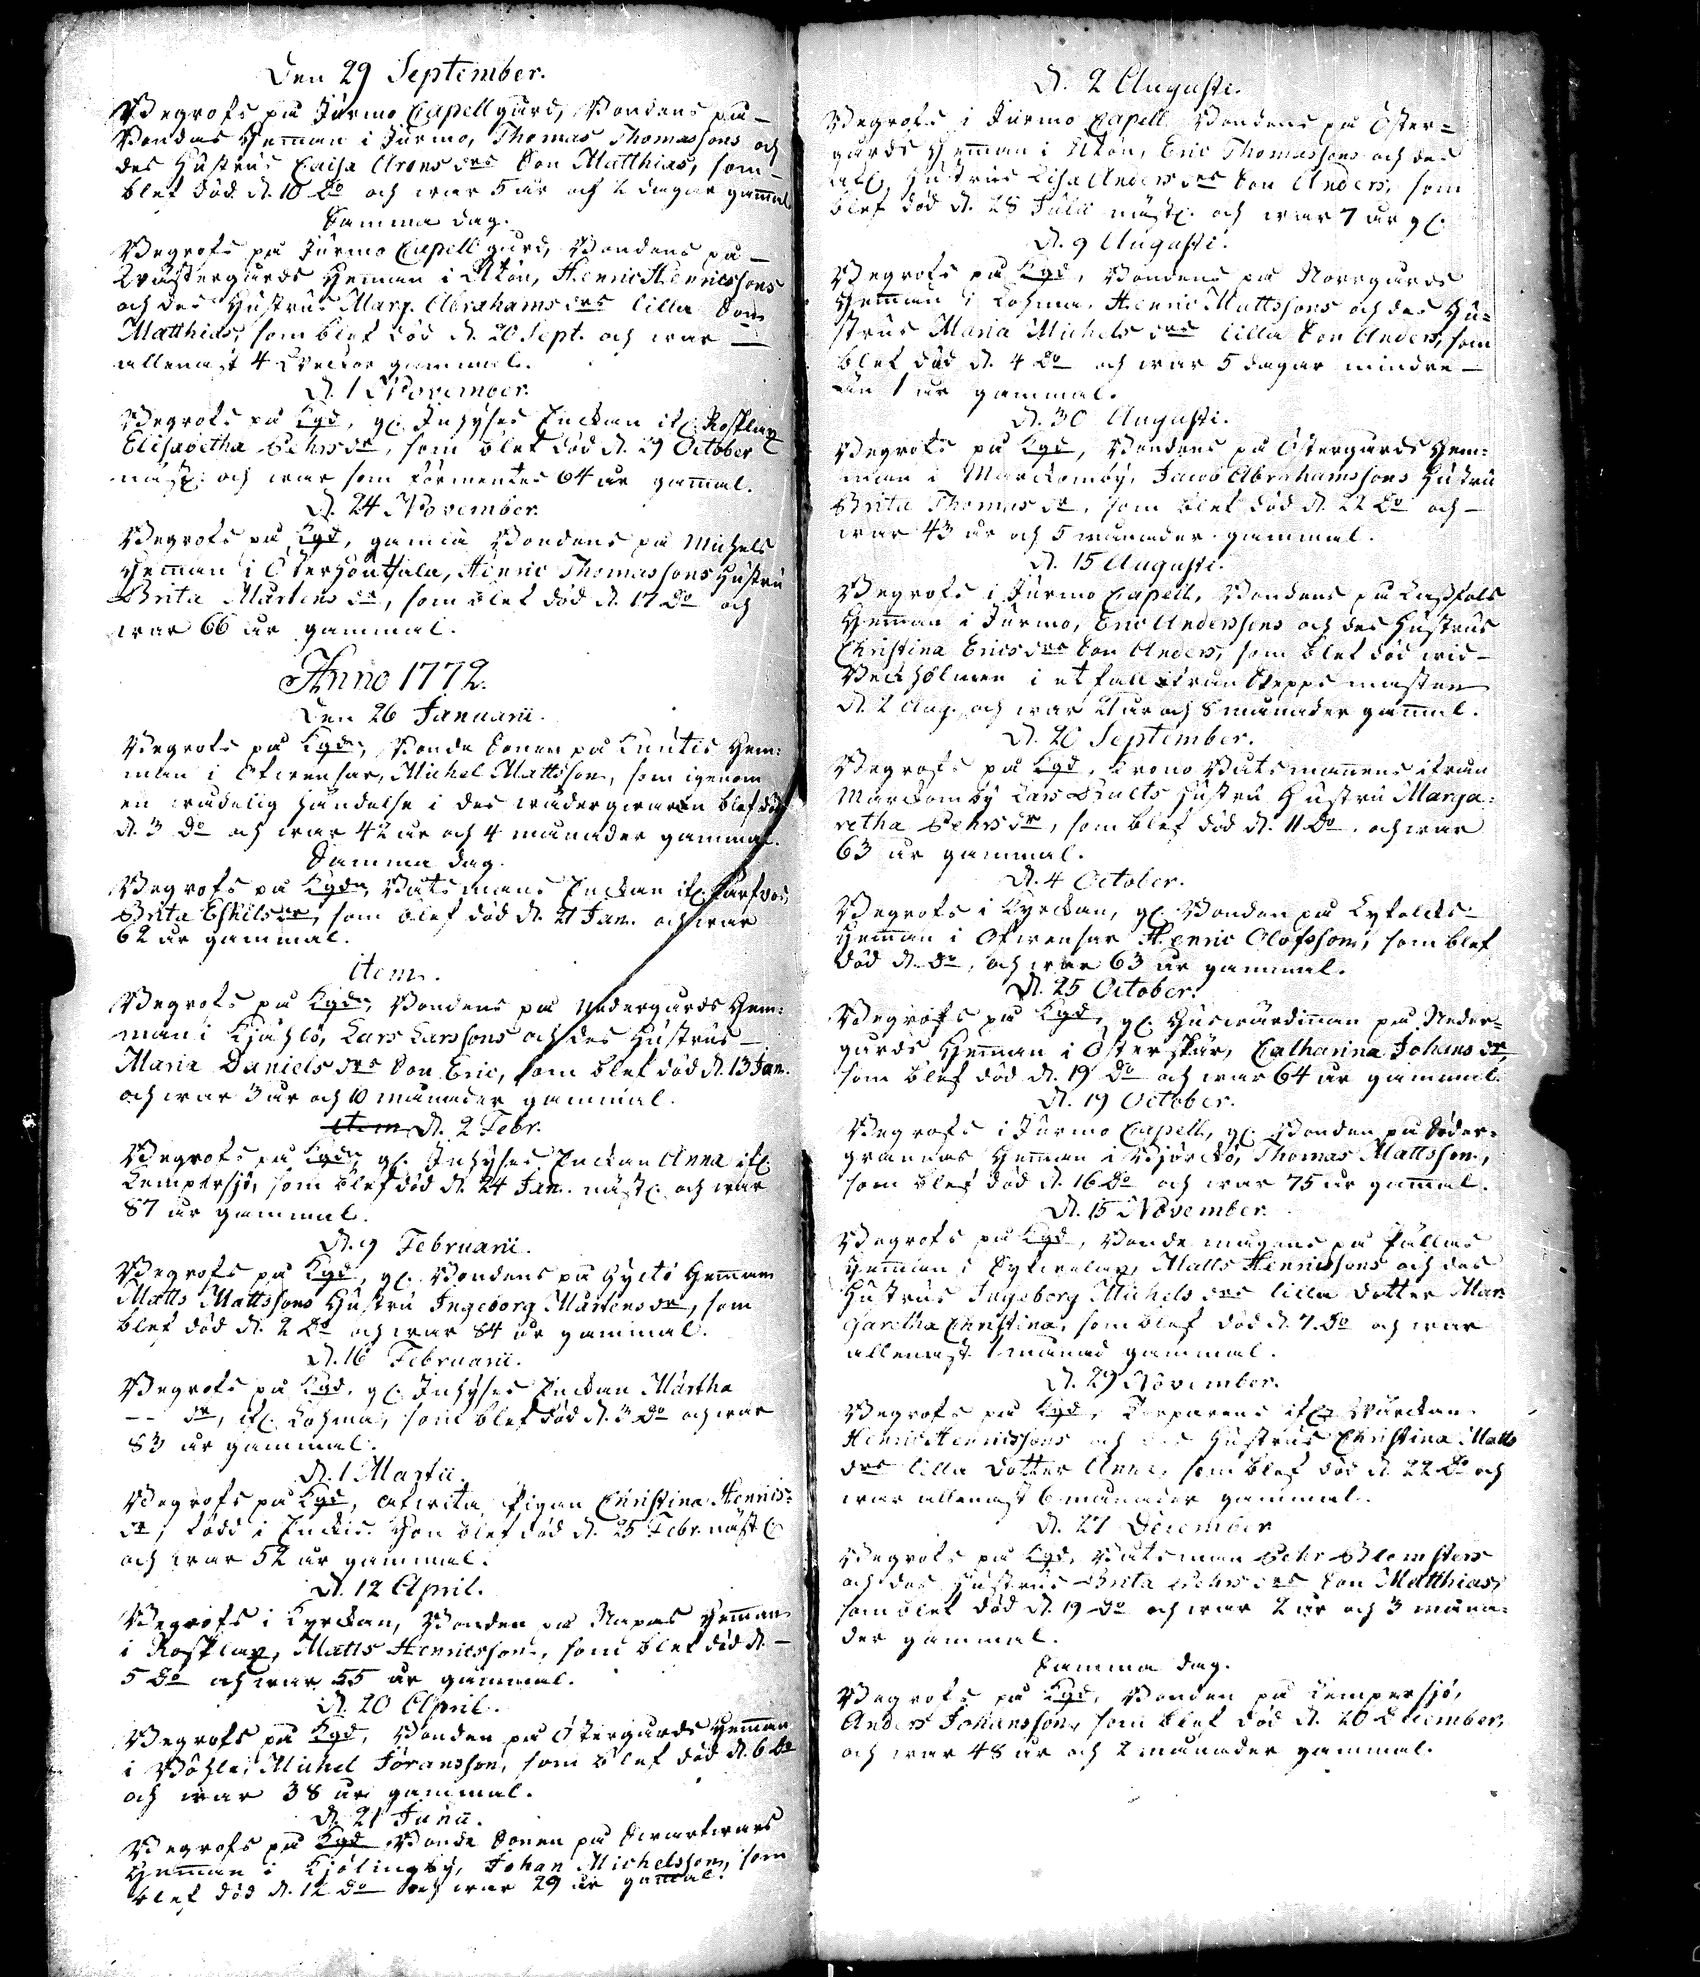 Den 29 September.
Begrofs på Jurmo Capellgård, Bondens på
Bondas Hemman i Jurmo, Thomas Thomassons och
des Hustrus Caisa Arons drs Son Matthias, som
blef död d. 10 do och war 5 år och 2 dagar gamal
Samma dag.
Begrofs på Jurmo Capellgård, Bondens på
Wästergårds Heman i Åkön, Henric Henricssons
och des Hustrus Marg. Abrahams drs lilla Son
Matthias, som blef död d. 20 Sept. och war
allenast 4 Weckor gammal.
d. 1 November.
Begrofs på Kgd, gl. Inhyses Enckan ifr. Rosklax
Elisabetha Pehrs dr, som blef död d. 29 October
näst. och war som förmentes 64 år gamal.
d. 24 November.
Begrofs på Kgd, gamla Bondens på Michels
Heman i Österhoutsala, Henric Thomassons Hustru
Brita Mårtens dr, som blef död d. 17 do och
war 66 år gammal.
Anno 1772.
Den 26 Januarii.
Begrofs på Kgdn, Bonde Sonen på Kuntis Hem-
man i Åfwensar, Michel Mattsson, som igenom
en wådelig händelse i des wäderqwarn blef död
d. 3 do och war 42 år och 4 månader gammal.
Samma dag.
Begrofs på Kgdn, Båtsmans Enckan ifr.
Brita Eskils dr, som blef död d. 21 Jan. och war
62 år gammal.
item.
Begrofs på Kgdn, Bondens på Nedergårds Hem-
man i Kjählö, Lars Larssons och des Hustrus
Maria Daniels drs Son Eric, som blef död d. 13 Jan.
och war 3 år och 10 månader gammal.
d. 2 Febr.
Begrofs på Kgdn, gl. Inhyses Enckan Anna ifr.
Kempersjö, som blef död d. 24 Jan. näst. och war
87 år gammal.
d. 9 Februarii.
Begrofs på Kgd, gl. Bondens på Hyctö Hemman
Matts Mattssons Hustru Ingeborg Mårtens dr, som
blef död d. 2 do och war 84 år gammal.
d. 16 Februarii.
Begrofs på Kgd, gl. Inhyses Enckan Märtha
-- dr, ifr. Lohma, som blef död d. 3 do och war
83 år gammal.
d. 1 Martii.
Begrofs på Kgd, ofwita Pigan Christina Henrics-
dr, född i Enckis. Hon blef död d. 25 Febr. näst.
och war 52 år gammal.
d. 12 April.
Begrofs i Kyrckan, Bonden på Napas Heman
i Rosklax, Matts Henricsson, som blef död d.
5 do och war 55 år gammal.
d. 20 April.
Begrofs på Kgd, Bonden på Östergårds Heman
i Böhle, Michel Jöransson, som blef död d. 6 do
och war 38 år gammal.
d. 21 Junii.
Begrofs på Kgd Bonde Sonen på Swartwars
Heman i Kjölingby, Johan Michelsson, som
blef död d. 12 do och war 29 år gamal.
d. 2 Augusti.
Begrofs i Jurmo Capell Bondens på Öster-
gårds Heman i Åkön, Eric Thomassons och des
afl. Hustrus Lisa Anders drs Son Anders, som
blef död d. 28 Julii näst. och war 7 år gl.
d. 9 Augusti.
Begrofs på Kgd, Bondens på Norrgårds
Heman i Lohma, Henric Mattssons och des Hu-
strus Maria Michels drs lilla Son Anders, som
blef död d. 4 do och war 5 dagar mindre
än 1 år gammal.
d. 30 Augusti.
Begrofs på Kgd, Bondens på Östergårds Hem-
man i Marckomby, Jacob Abrahamssons Hustru
Brita Thomas dr, som blef död d. 22 do och
war 43 år och 5 månader gammal.
d. 15 Augusti.
Begrofs i Jurmo Capell, Bondens på
Heman i Jurmo, Eric Anderssons och des Hustrus
Christina Erics drs Son Anders, som blef död wid
Beckholmen i et fall ifrån Skepps masten
d. 2 Aug. och war 21 år och 8 månader gamal.
d. 20 September.
Begrofs på Kgd, Krono Båtsmannens ifrån
Marckomby Lars Hustru Hustru Marga-
retha Pehrs dr, som blef död d. 11 do. och war
63 år gammal.
d. 4 October.
Begrofs i Kyrckan, gl. Bonden på
Heman i Åfwensar Henric Olofsson, som blef
död d. do, och war 63 år gammal.
d. 25 October.
Begrofs på Kgd, gl. Huswärdinnan på Neder-
gårds Heman i Österskär, Catharina Johans dr,
som blef död d. 19 do och war 64 år gammal.
d. 19 October.
Begrofs i Jurmo Capell, gl. Bonden på Söder-
grannas Heman i Björckö, Thomas Mattsson,
som blef död d. 16 do och war 75 år gamal.
d. 15 November.
Begrofs på Kgd, Bonde mågens på Pällas
Heman i Fyfwelax, Matts Henricssons och des
Hustrus Ingeborg Michels drs lilla dotter Mar-
garetha Christina, som blef död d. 7. do och war
allenast 1 månad gammal.
d. 29 November.
Begrofs på Kgd, Torparens ifr.
Henric Henricssons och des Hustrus Christina Matts
drs lilla dotter Anna, som blef död d. 22 do och
war allenast 6 månader gammal.
d. 27 December
Begrofs på Kgd, Båtsman Pehr Blomsters
och des Hustrus Brita Pehrs drs Son Matthias,
som blef död d. 19 do och war 2 år och 3 måna-
der gammal.
Samma dag.
Begrofs på Kgd, Bonden på Kempersjö,
Anders Johansson, som blef död d. 20 December,
och war 48 år och 2 månader gammal.